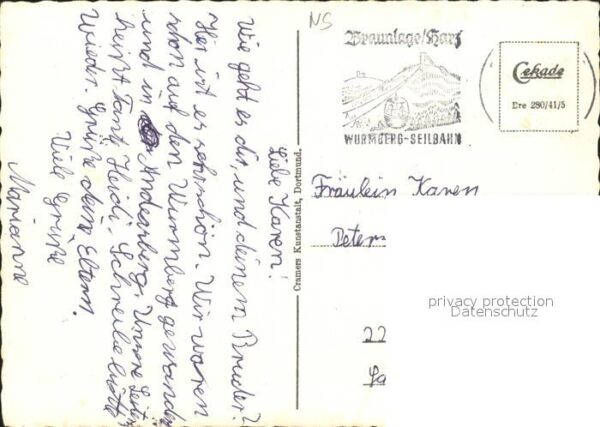 NS
Braunlage/Harz
WURMBERG-SEILBAHN
Cekade
Ere 280/41/5
Liebe Karen!
Wie geht es dir, und deinem Bruder?
Hier ist es sehr schön. Wir waren
schon auf den Wurmberg gewandert
und in Andreasberg. Unsere Leiterin
heißt Tante Heidi. Schreibe bitte
wieder. Grüße deine Eltern.
Viele Grüße
Marianne
Cramers Kunstanstalt, Dortmund.
Fräulein Karen
Peters
privacy protection
Datenschutz
22